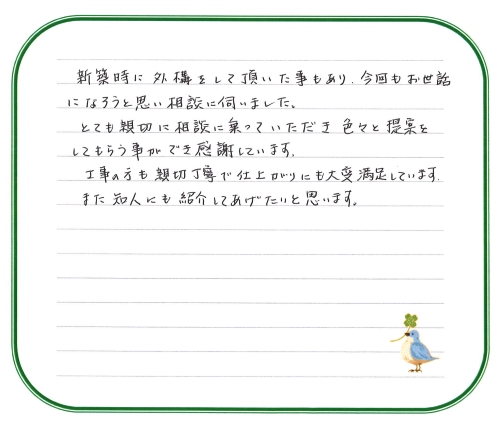 新築時に外構をして頂いた事もあり、今回もお世話
になろうと思い相談に伺いました。
とても親切に相談に乗っていただき色々と提案を
してもらう事ができ感謝しています。
工事の方も親切丁寧で仕上がりにも大変満足しています。
また知人にも紹介してあげたいと思います。